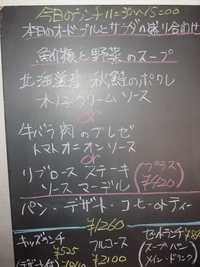 今日のランチ 11=30〜15=00
本日のオードブルとサラダの盛り合わせ
魚介類と野菜のスープ
北海道産 秋鮭のポワレ
キノコクリームソース
or
牛バラ肉のブレゼ
トマトオニオンソース
or
リブロースステーキ (プラス
ソースマデール ¥420)
パン・デザート・コーヒー or ティー
¥1260
キッズランチ
¥525
フルコース
¥2100
(スープ・パン
メイン・ドリンク)